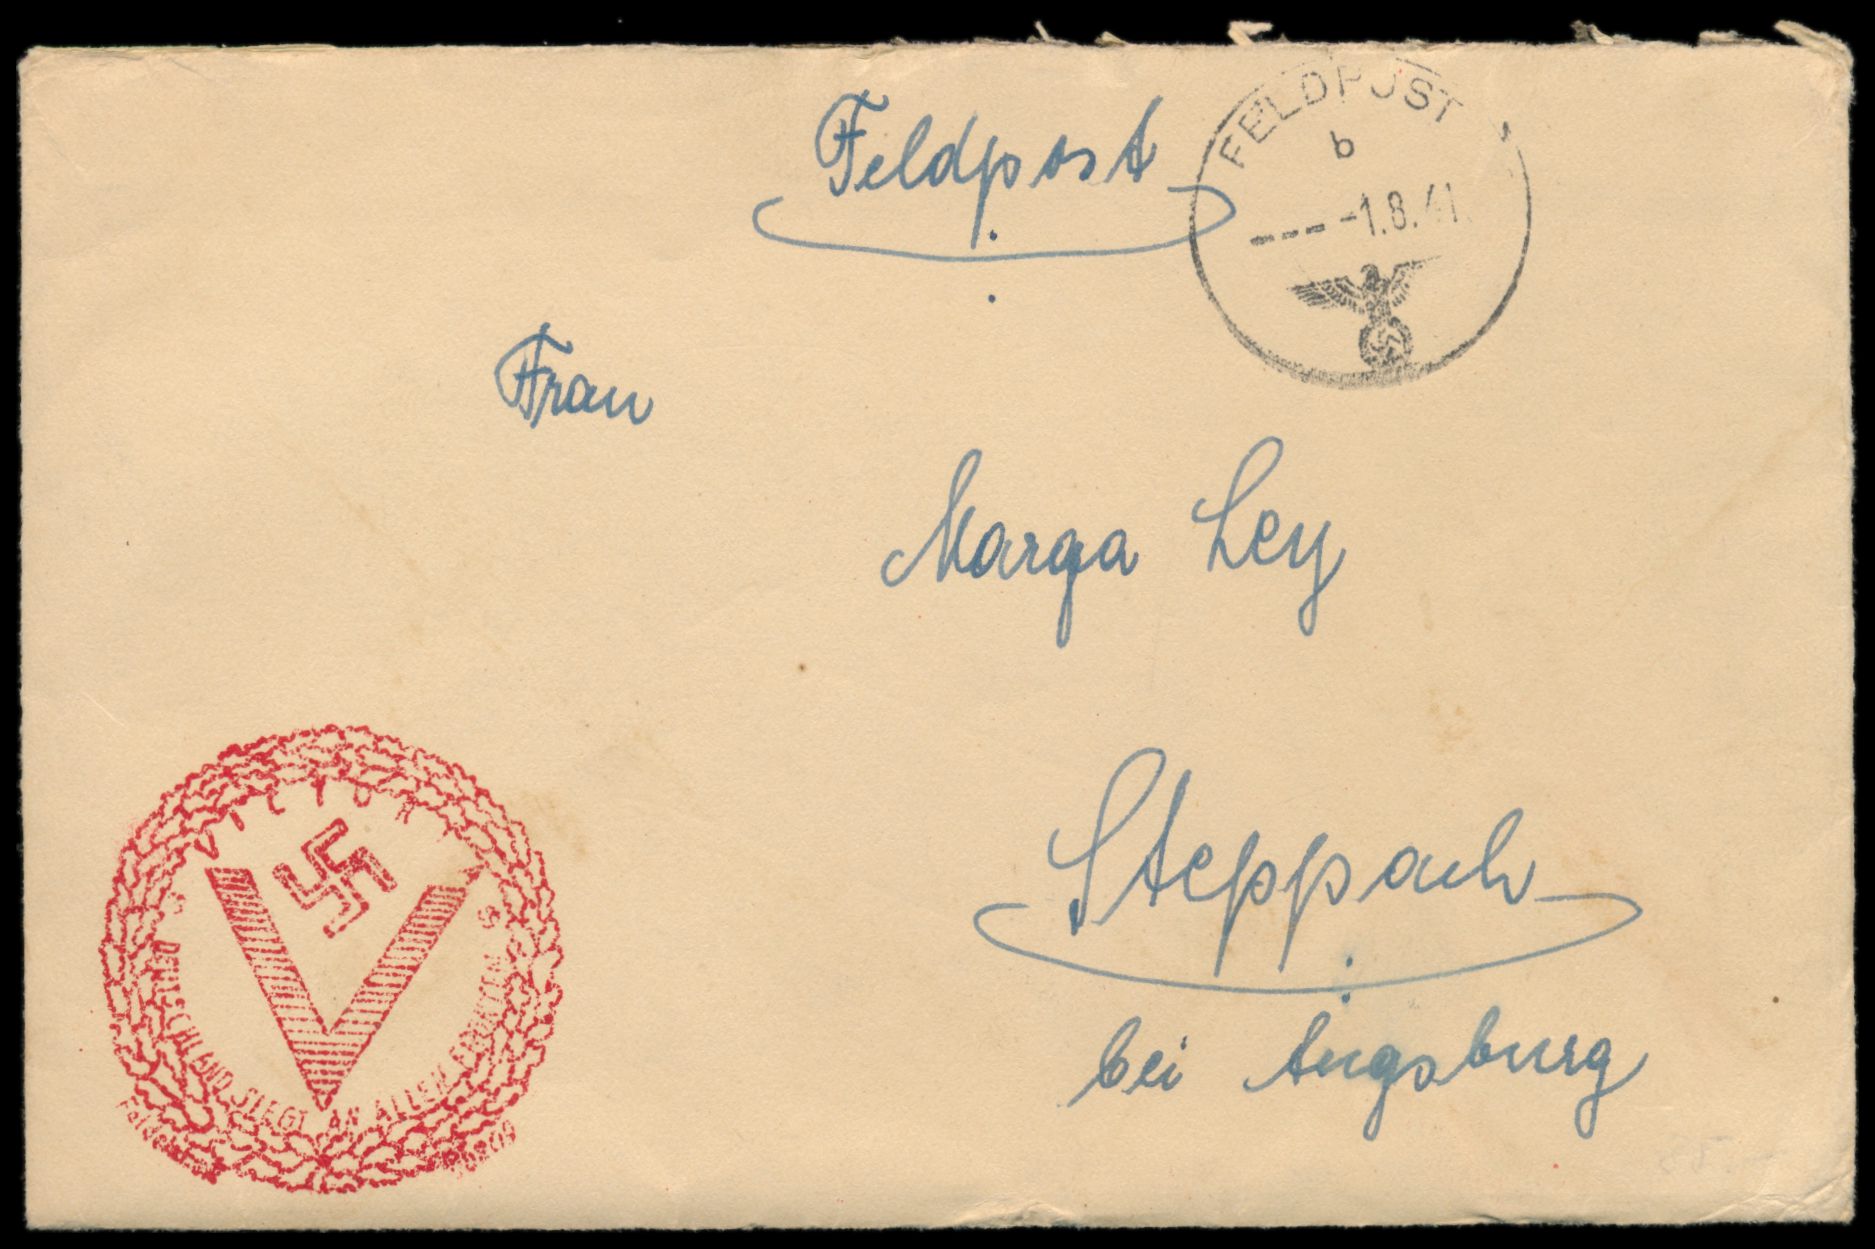 Feldpost
FELDPOST
b
--- -1.8.41.
Frau
Marga Ley
Steppach
bei Augsburg
VICTORIA
DEUTSCHLAND SIEGT AN ALLEN FRONTEN